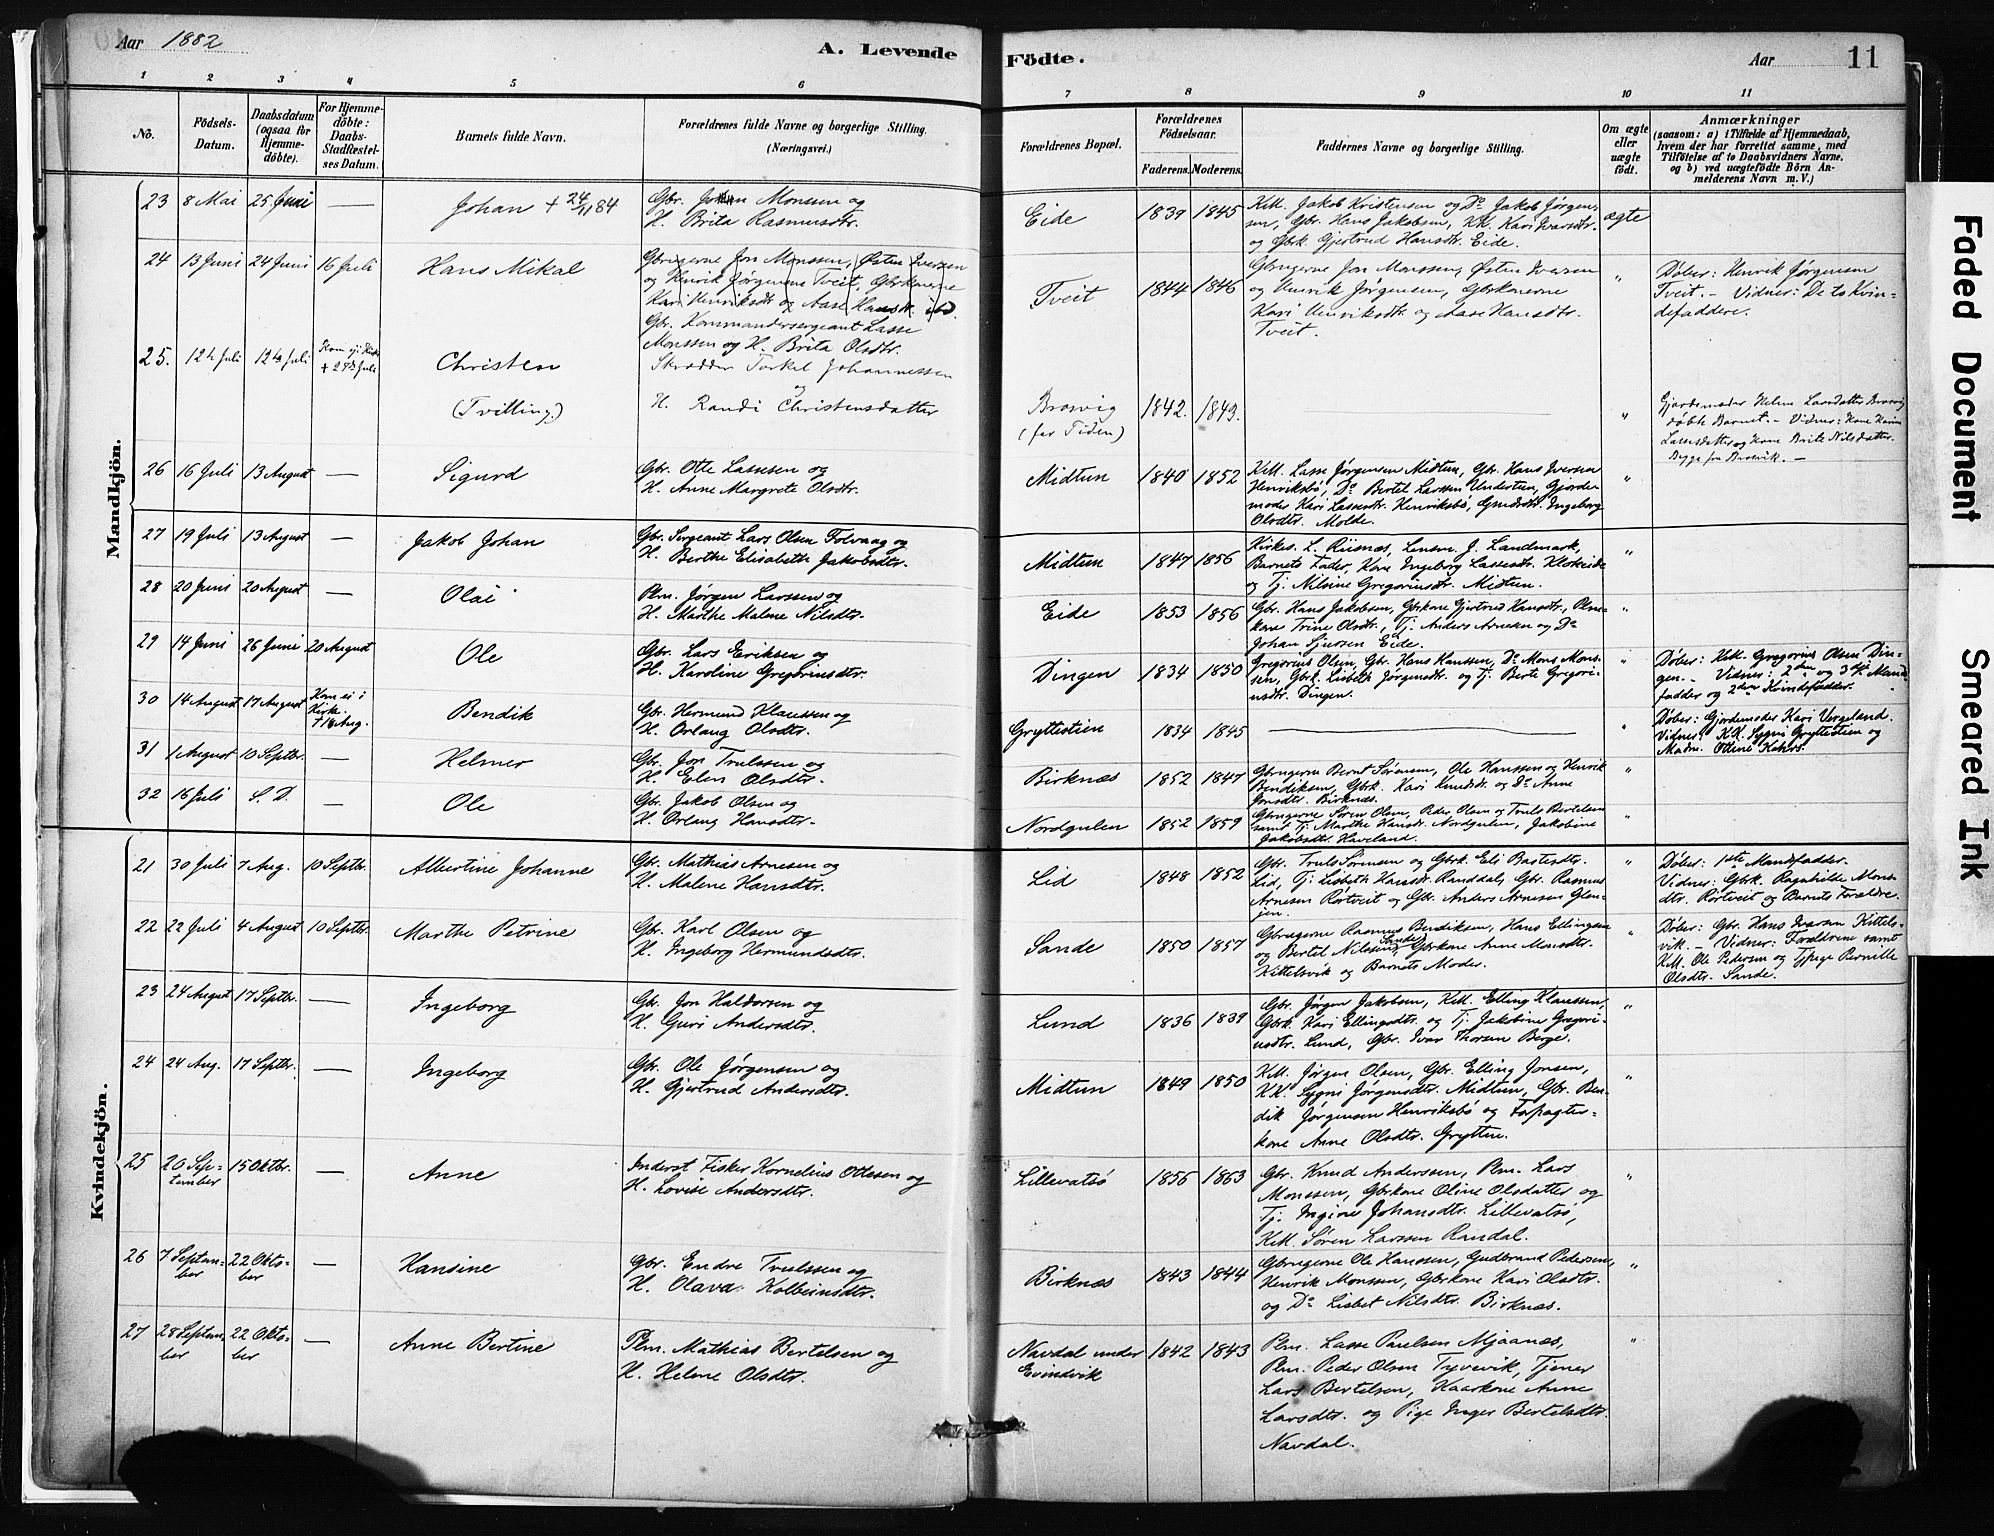 Aar 1882
A. Levende
Födte.
Aar
11
1 2 3 4 5 6 7 8 9 10 11
No.
Födsels-
Datum.
Daabsdatum
(ogsaa for
Hjemme-
döbte).
For Hjemme-
döbte:
Daabs-
Stadfæstel-
ses Datum.
Barnets fulde Navn.
Forældrenes fulde Navne og borgerlige Stilling.
(Næringsvei.)
Forældrenes Bopæl.
Forældrenes
Födselsaar.
Faderens. Moderens.
Faddernes Navne og borgerlige Stilling.
Om ægte
eller
uægte
födt.
Anmærkninger
(saasom: a) i Tilfælde af Hjemmedaab,
hvem der har forrettet samme, med
Tilföielse af to Daabsvidners Navne,
og b) ved uægtefödte Börn An-
melderens Navn m. V.)
Mandkjön.
23 8 Mai 25 Juni — Johan + 24/11 84
Gbr. Johan Monssen og
H. Brita Rasmusdtr.
Eide 1839 1845
Kill. Jakob Kristensen og Do Jakob Jørgen-
sen, Gbr. Hans Jakobsen, KK. Kari Ivarsdtr.
og Gbrk. Gjertrud Hansdtr. Eide.
ægte
24 13 Juni 24 Juni 16 Juli Hans Mikal
Gbrugerne Jon Monssen, Østen Iversen
og Henrik Jørgensen Tveit, Gbrkonerne
Kari Henriksdtr. og Aase Hansdtr. ibd.
Gbr. Kommandersergeant Lasse
Monssen og H. Brita Olsdtr.
Tveit 1844 1846
Gbrugerne Jon Monssen, Østen Iversen
og Henrik Jørgensen, Gbrkonerne
Kari Henriksdtr. og Aase Hansdtr.
Tveit.
"
Døber: Henrik Jørgensen
Tveit. – Vidner: De to Kvin-
defaddere.
25. 12te Juli 12te Juli Kom ej i Kirke
+ 29de Juli
Christen
(Tvilling.)
Skrædder Torkel Johannessen
og
H. Randi Christensdatter
Brosvig
(for Tiden)
1842. 1849. — "
Gjordemoder Helene Larsdatter Brosvig
døbte Barnet. – Vidner: Kone Karen
Lassesdatter og Kone Brite Nilsdatter.
Begge fra Brosvik. –
26 16 Juli 13 August — Sigurd
Gbr. Otte Lassesen og
H. Anne Margrete Olsdtr.
Midtun 1840 1852
Kill. Lasse Jørgensen Midtun, Gbr. Hans Iversen
Henriksbø, Do Bertel Larssen Undertun, Gjorde-
moder Kari Lassesdtr. Henriksbø, Ingeborg
Olsdtr. Molde.
"
27 19 Juli 13 August — Jakob Johan
Gbr. Sergeant Lars Olsen Folvaag og
H. Berthe Elisabeth Jakobsdtr.
Midtun 1847 1856
Kirkes. L. Riisnæs, Lensm. J. Landmark,
Barnets Fader, Kone Ingeborg Lassesdtr. Klokeide
og Tj. Nilsine Gregoriusdtr. Midtun.
"
28 20 Juni 20 August — Olai
Plm. Jørgen Larssen og
H. Marthe Malene Nilsdtr.
Eide 1853 1856
Gbr. Hans Jakobsen, Gbrkone Gjertrud Hansdtr., Plm-
kone Trine Olsdtr., Tj. Anders Arnesen og Do
Johan Sjursen Eide.
"
29 14 Juni 26 Juni 20 August Ole
Gbr. Lars Eriksen og
H. Karoline Gregoriusdtr.
Dingen 1834 1850
Gregorius Olsen, Gbr. Hans Hanssen, Do Mons Mons-
sen, Gbrk. Lisbeth Jørgensdtr. og Tj. Berte Gregori-
usdtr. Dingen.
"
Døber: Kill. Gregorius Olsen Din-
gen. – Vidner: 2den og 3die Mand-
fadder og 2den Kvindefadder.
30 14 August 17 August Kom ei i
Kirke.
+ 18 Aug.
Bendik
Gbr. Hermund Klaussen og
H. Orlaug Olsdtr.
Gryttestien 1834 1845 — "
Døber: Gjordemoder Kari Vergeland.
Vidner: KK. Sygni Gryttestien og
Madm. Ottine Kahrs.
31 1 August 10 Septbr. — Helmer
Gbr. Jon Trulssen og
H. Elen Olsdtr.
Birknæs 1852 1847
Gbrugerne Bernt Sørensen, Ole Hanssen og Henrik
Bendiksen, Gbrk. Kari Knudsdtr. og Do Anne
Jonsdtr. Birknæs.
"
32 16 Juli S. D. — Ole
Gbr. Jakob Olsen og
H. Orlaug Hansdtr.
Nordgulen 1852 1859
Gbrugerne Søren Olsen, Peder Olsen og Truls Bertelsen
samt Tj. Marthe Hansdtr. Nordgulen, Jakobine
Jakobsdtr. Haveland.
"
Kvindekjön.
21 30 Juli 7 Aug. 10 Septbr. Albertine Johanne
Gbr. Mathias Arnesen og
H. Malene Hansdtr.
Lid 1848 1852
Gbr. Truls Sørensen og Gbrk. Eli Bastesdtr.
Lid, Tj. Lisbeth Hansdtr. Randdal, Gbr. Rasmus
Arnesen Rörtveit og Gbr. Anders Arnesen Glen-
jen.
"
Døber: 1ste Mandfadder.
Vidner: Gbrk. Ragnhilde Mons-
dtr. Rörtveit og Barnets Forældre.
22 22 Juli 4 August 10 Septbr. Marthe Petrine
Gbr. Karl Olsen og
H. Ingeborg Hermundsdtr.
Sande 1850 1857
Gbrugerne Rasmus Bendiksen, Hans Ellingsen
og Bertel Nilssen Sande, Gbrkone Anne Monsdtr.
Kittelsvik og Barnets Moder.
"
Døber: Gbr. Hans Ivarsen Kittels-
vik. – Vidner: Forældrene samt
KM. Ole Pedersen og Tjpige Pernille
Olsdtr. Sande.
23 24 August 17 Septbr. — Ingeborg
Gbr. Jon Haldorsen og
H. Guri Andersdtr.
Lund 1836 1839
Gbr. Jørgen Jakobsen, Kill. Elling Klaussen,
Gbrk. Kari Ellingsdtr. og Tj. Jakobine Gregori-
usdtr. Lund, Gbr. Ivar Thorsen Berge.
"
24 24 Aug. 17 Septbr. — Ingeborg
Gbr. Ole Jørgensen og
H. Gjertrud Andersdtr.
Midtun 1849 1850
Kill. Jørgen Olsen, Gbr. Elling Jonsen,
KK. Sygni Jørgensdtr. Midtun, Gbr. Ben-
dik Jørgensen Henriksbø og Forpagter-
kone Anne Olsdtr. Grytten.
"
25 20 Sep-
tember
15 Oktbr. — Anne
Inderst Fisker Kornelius Ottesen og
H. Lovise Andersdtr.
Lillevatsø 1856 1863
Gbr. Knud Anderssen, Plm. Lars
Monssen, Gbrkone Oline Olsdatter og
Tj. Ingine Johansdtr. Lillevatsø,
Kill. Søren Larssen Randal.
"
26 7 Septem-
ber
22 Okto-
ber
— Hansine
Gbr. Endre Trulssen og
H. Olava Kolbeinsdtr.
Birknæs 1843 1844
Gbrugerne Ole Hanssen, Gudbrand Pedersen,
Henrik Monssen, Gbrkone Kari Olsdtr.
og Do Lisbet Nilsdtr. Birknæs.
"
27 28 Septem-
ber
22 Okto-
ber
— Anne Bertine
Plm. Mathias Bertelsen og
H. Helene Olsdtr.
Navdal under
Evindvik
1842 1843
Plm. Lasse Paulsen Mjaanæs,
Plm. Peder Olsen Tyvevik, Tjener
Lars Bertelsen, Kaarkone Anne
Larsdtr. og Pige Inger Bertelsdtr.
Navdal.
"
Faded Document
Smeared Ink